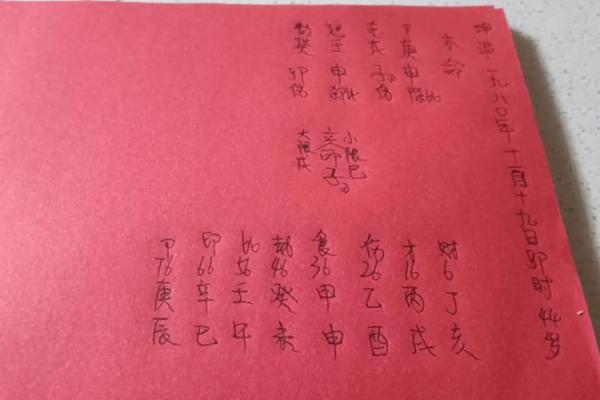 坤造 一九八〇年十一月十九日卯时 44岁
本命
卩庚申
杀戊子
壬申
劫癸卯伤
小限巳
立命子
大限戌
财6丁亥
才16丙戌
伤26乙酉
食36甲申
劫46癸未
比56壬午
印66辛巳
卩76庚辰